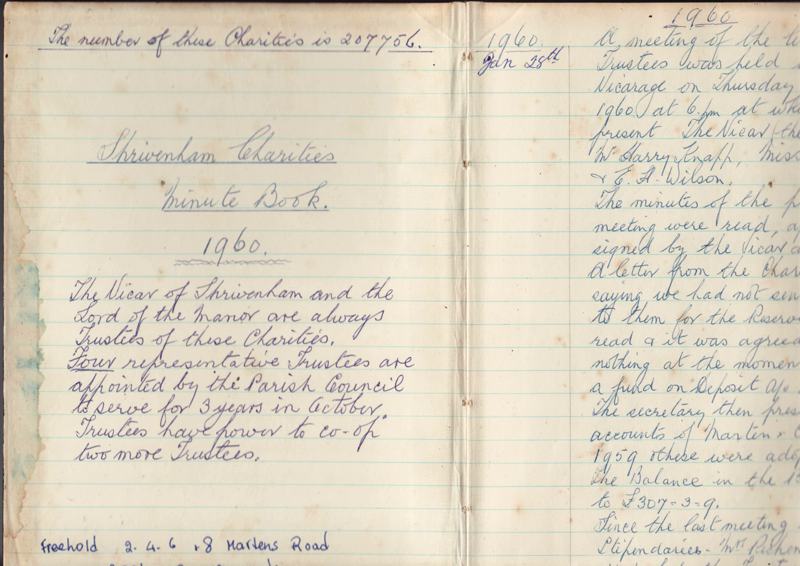 The number of these Charities is 207756.
Shrivenham Charities
Minute Book.
1960.
The Vicar of Shrivenham and the
Lord of the Manor are always
Trustees of these Charities.
Four representative Trustees are
appointed by the Parish Council
to serve for 3 years in October.
Trustees have power to co-op
two more Trustees.
Freehold 2. 4. 6 & 8 Martens Road
1960.
Jan 28th
1960
A meeting of the
Trustees was held
Vicarage on Thursday
1960 at 6.pm at
present The Vicar
Mr Harry Knapp, Miss
& E. A. Wilson.
The minutes of the
meeting were read,
signed by the Vicar
A letter from the
saying we had not
to them for the
read & it was
nothing at the
a fund on Deposit A/c
The secretary then
accounts of Marten &
1959 & these were
The Balance in the
to £307-3-9.
Since the last meeting
Stipendaries - Mrs